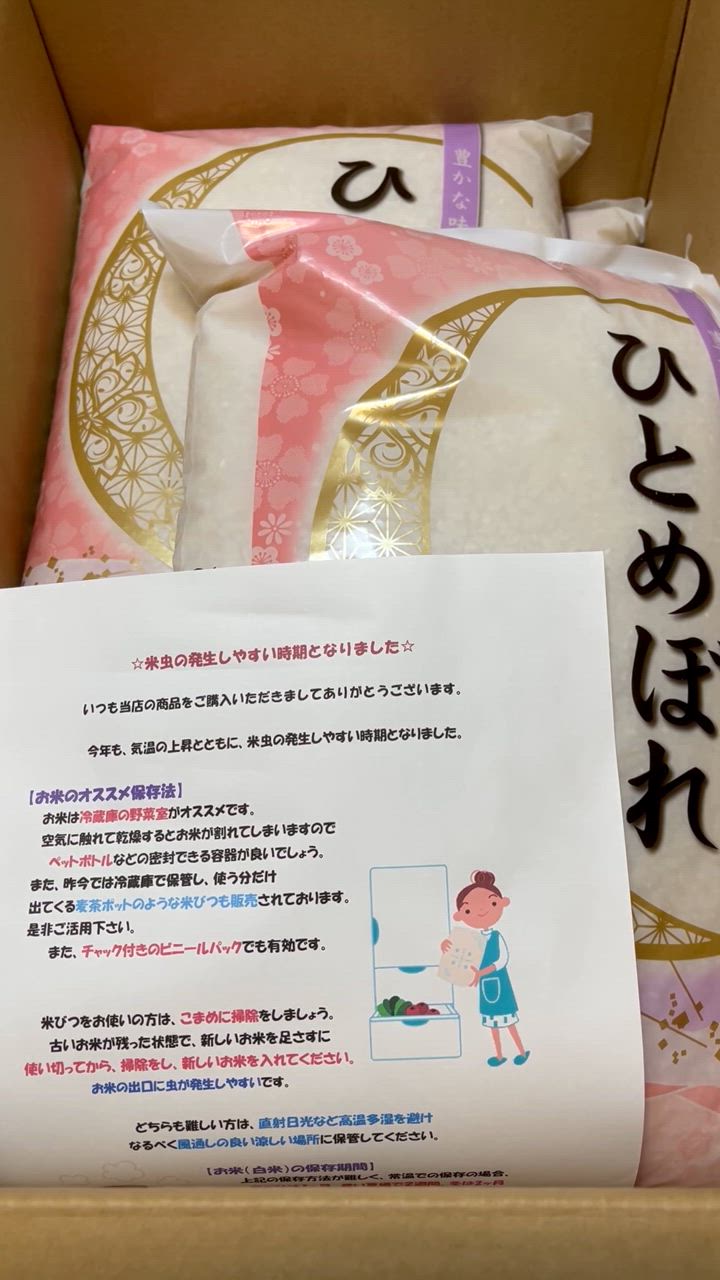 ひ
豊かな味
ひとめぼれ
☆米虫の発生しやすい時期となりました☆
いつも当店の商品をご購入いただきましてありがとうございます。
今年も、気温の上昇とともに、米虫の発生しやすい時期となりました。
【お米のオススメ保存法】
お米は冷蔵庫の野菜室がオススメです。
空気に触れて乾燥するとお米が割れてしまいますので
ペットボトルなどの密封できる容器が良いでしょう。
また、昨今では冷蔵庫で保管し、使う分だけ
出てくる麦茶ポットのような米びつも販売されております。
是非ご活用下さい。
また、チャック付きのビニールパックでも有効です。
米びつをお使いの方は、こまめに掃除をしましょう。
古いお米が残った状態で、新しいお米を足さずに
使い切ってから、掃除をし、新しいお米を入れてください。
お米の出口に虫が発生しやすいです。
どちらも難しい方は、直射日光など高温多湿を避け
なるべく風通しの良い涼しい場所に保管してください。
【お米(白米)の保存期間】
上記の保存方法が難しく、常温での保存の場合、